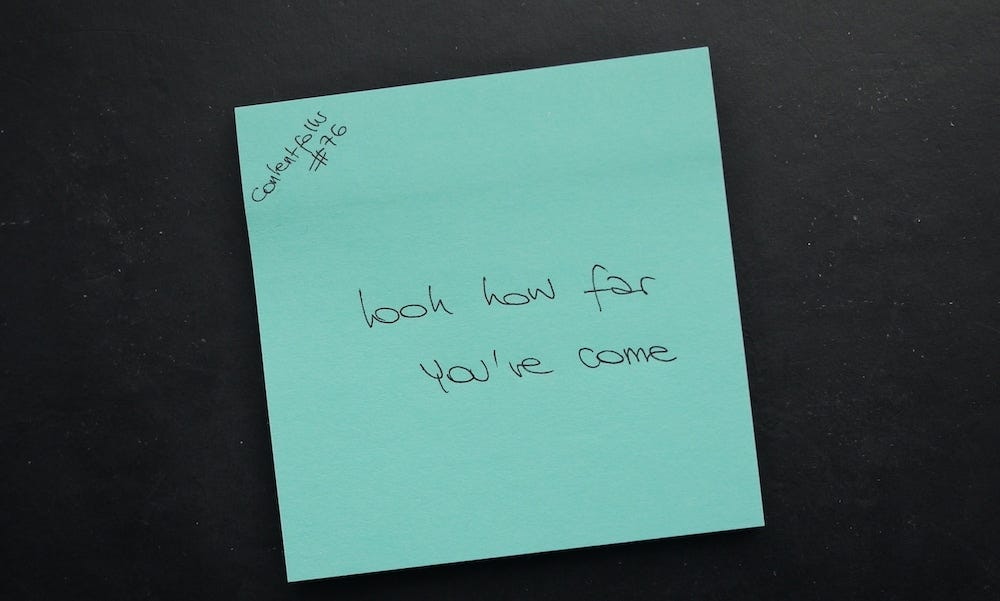 contentfolks
#76
look how far
you've come